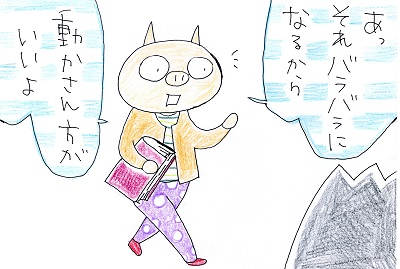 あっ
それバラバラに
なるから
動かさん方が
いいよ